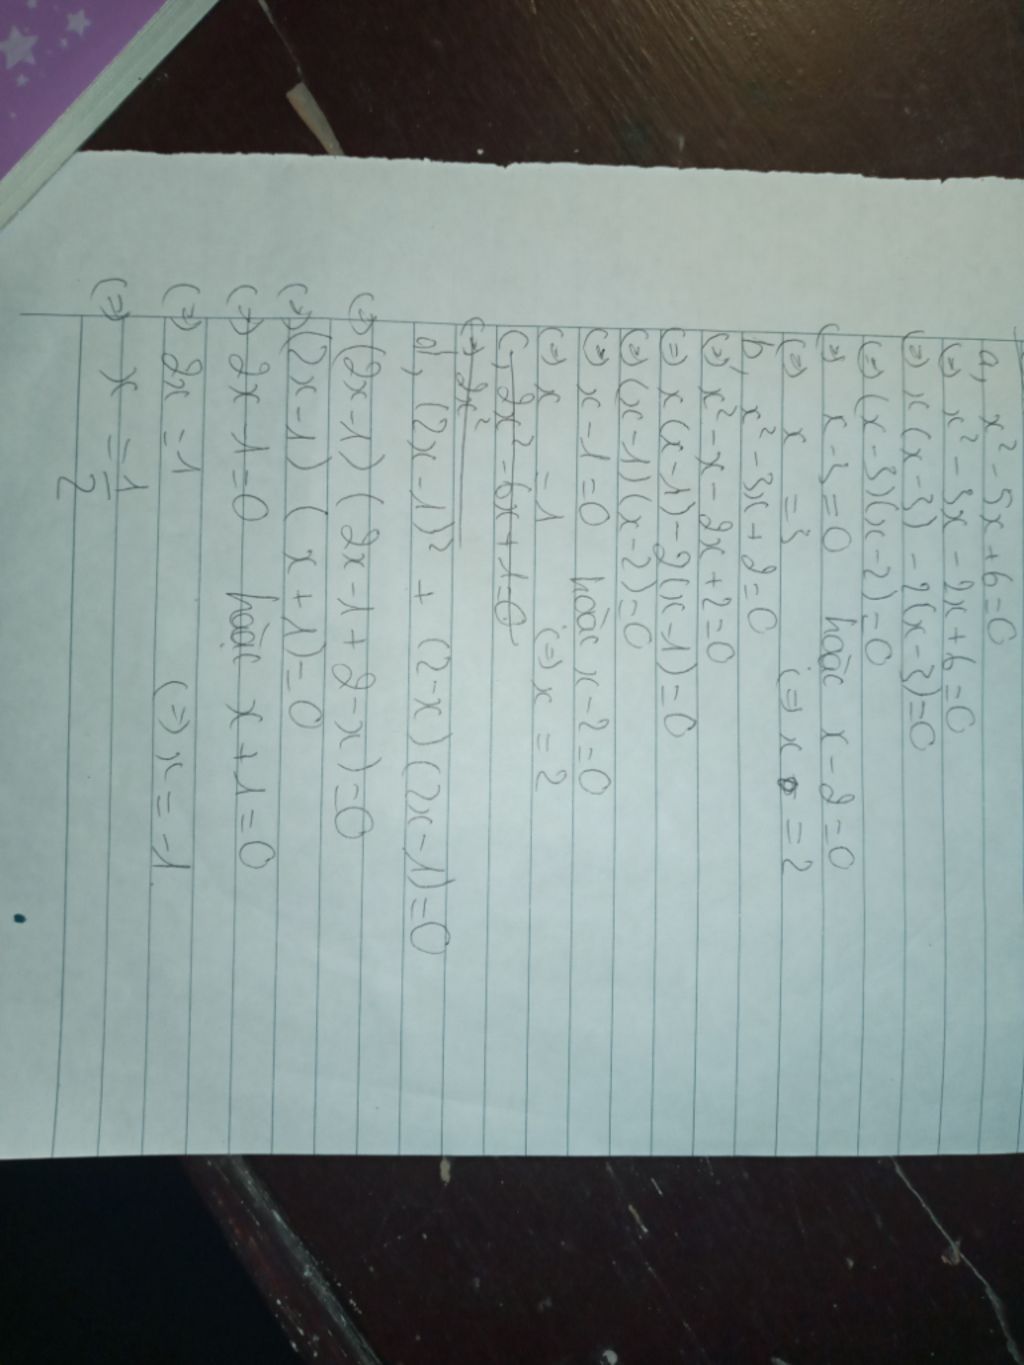 a, x² - 5x + 6 = 0
(=) x² - 3x - 2x + 6 = 0
(=) x(x - 3) - 2(x - 3) = 0
(=) (x - 3)(x - 2) = 0
(=) x - 3 = 0 hoặc x - 2 = 0
(=) x = 3 (=) x = 2
b, x² - 3x + 2 = 0
(=) x² - x - 2x + 2 = 0
(=) x(x - 1) - 2(x - 1) = 0
(=) (x - 1)(x - 2) = 0
(=) x - 1 = 0 hoặc x - 2 = 0
(=) x = 1 (=) x = 2
c, 2x² - 6x + 1 = 0
(=) 2x²
d, (2x - 1)² + (2 - x)(2x - 1) = 0
(=) (2x - 1)(2x - 1 + 2 - x) = 0
(=) (2x - 1)(x + 1) = 0
(=) 2x - 1 = 0 hoặc x + 1 = 0
(=) 2x = 1 (=) x = -1
(=) x = 1/2